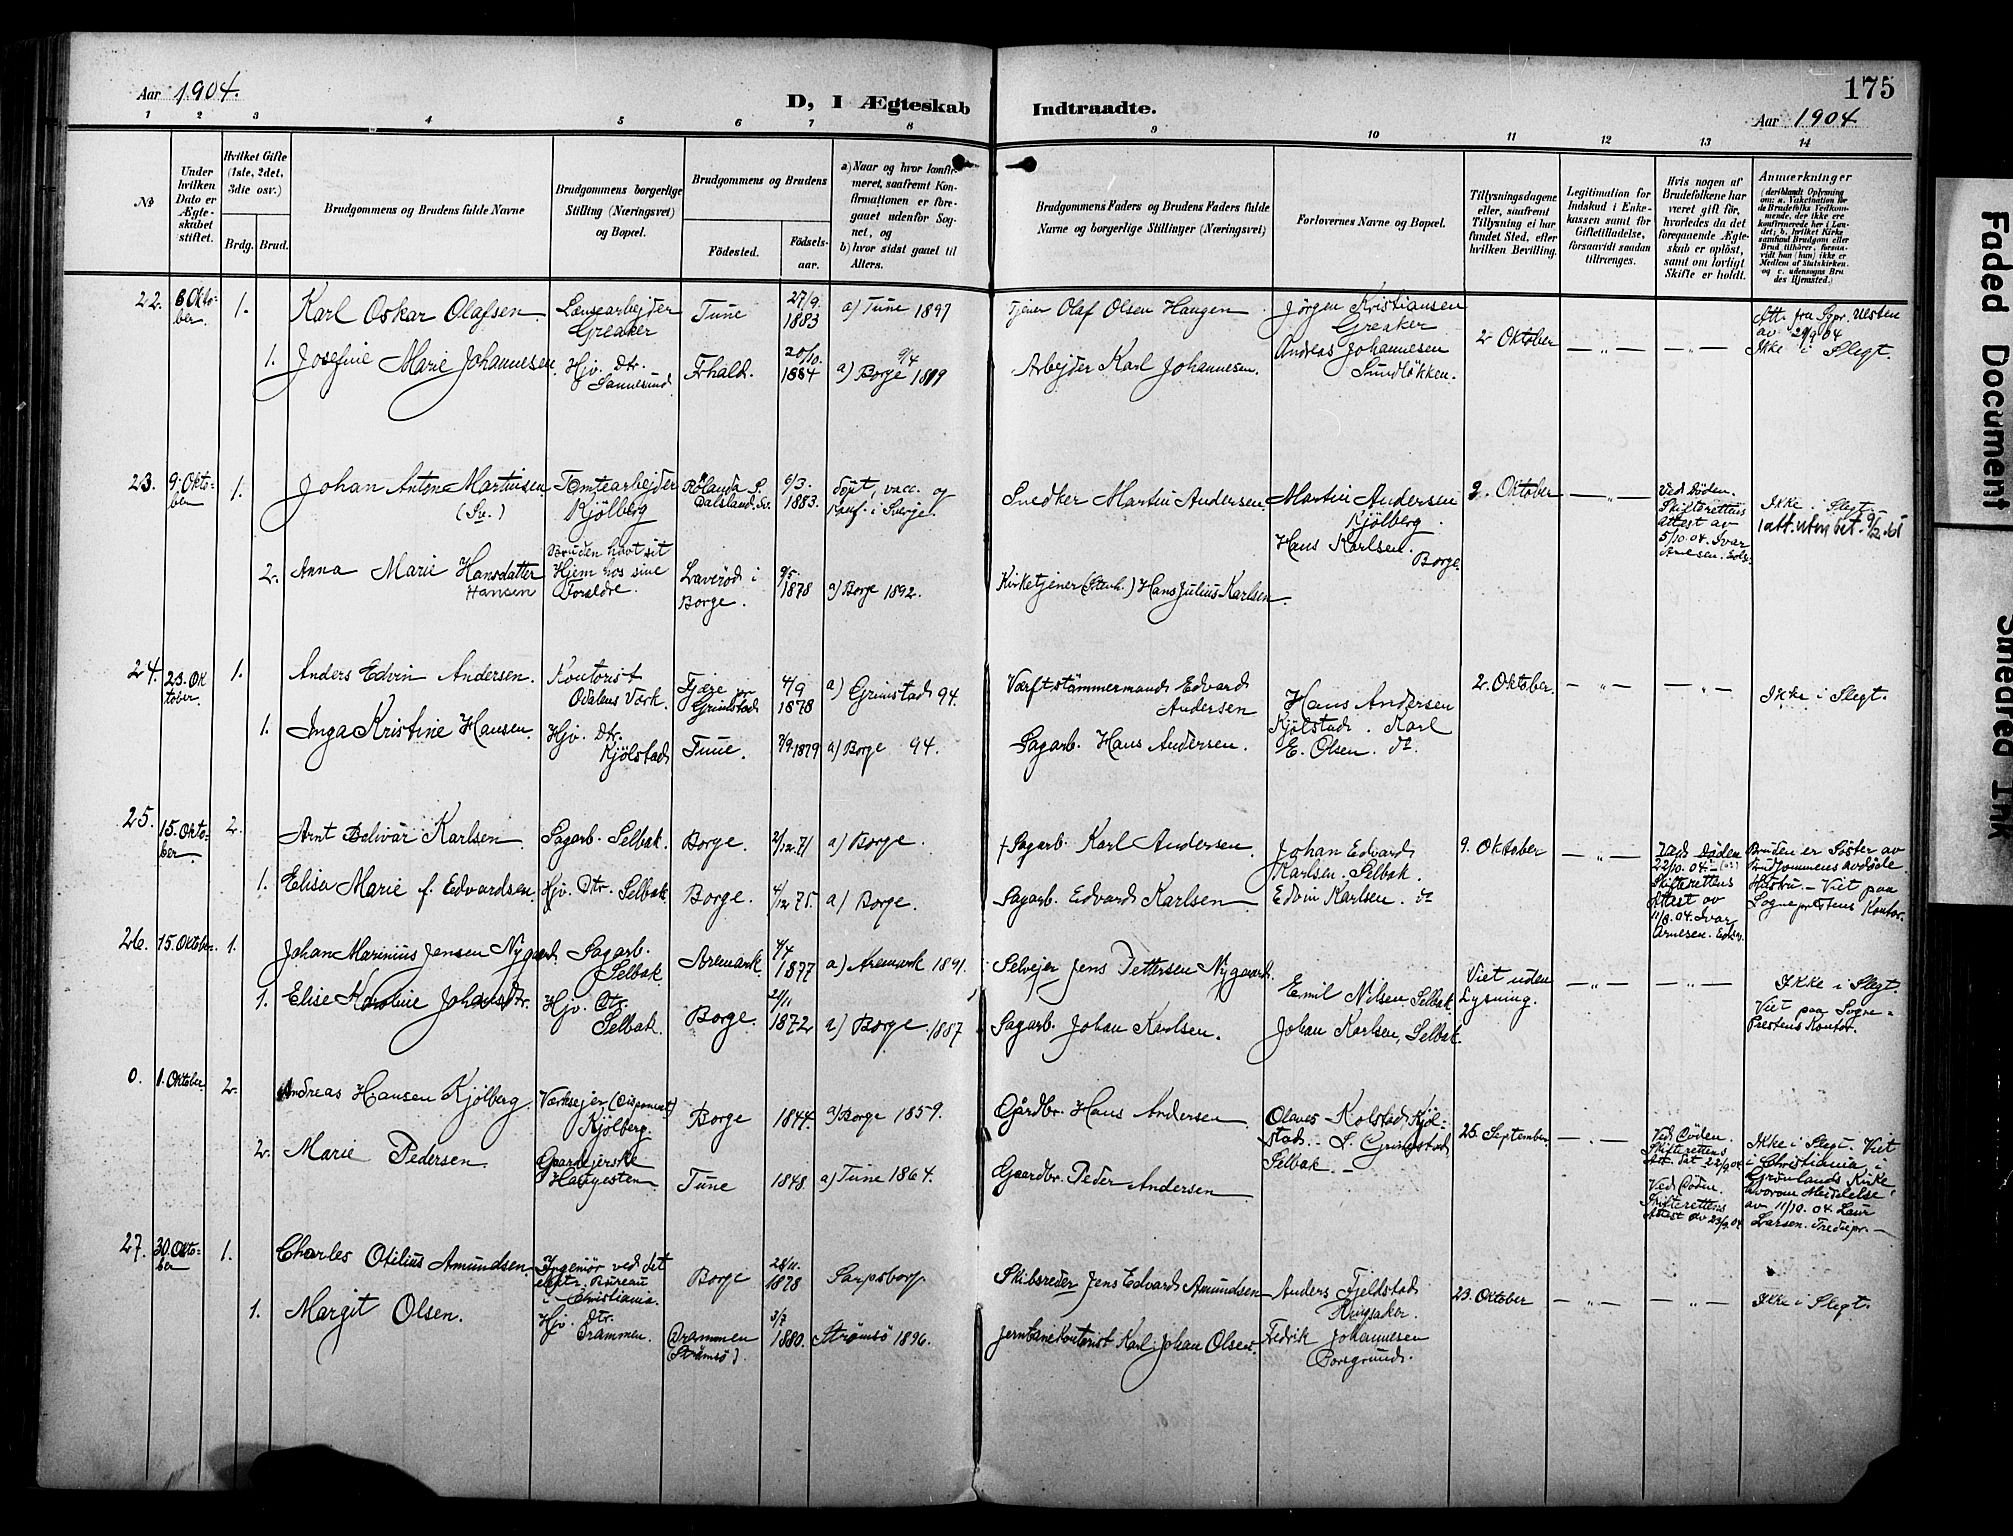 Aar 1904.
D, I Ægteskab Indtraadte.
175
Aar 1904
1 2 3 4 5 6 7 8 9 10 11 12 13 14
No
Under hvilken Dato er Ægteskabet stiftet.
Hvilket Gifte (1ste, 2det, 3die osv.)
Brdg. Brud.
Brudgommens og Brudens fulde Navne
Brudgommens borgerlige Stilling (Næringsvei) og Bopæl.
Brudgommens og Brudens
Fødested.
Fødselsaar.
a) Naar og hvor konfirmeret, saafremt Konfirmationen er foregaaet udenfor Sognet, og
b) hvor sidst gaaet til Alters.
Brudgommens Faders og Brudens Faders fulde Navne og borgerlige Stillinger (Næringsvei)
Forlovernes Navne og Bopæl.
Tillysningsdagene eller, saafremt Tillysning ei har fundet Sted, efter hvilken Bevilling.
Legitimation for Indskud i Enkekassen samt for Giftetilladelse, forsaavidt saadan tiltrænges.
Hvis nogen af Brudefolkene har været gift før, hvorledes da det foregaaende Ægteskab er opløst, samt om lovligt Skifte er holdt.
Anmærkninger
22. 8 Oktober. 1. Karl Oskar Olafsen. Lænsearbejder Greaker Tune 27/9. 1883 a) Tune 1897 Tjener Olaf Olsen Haugen Jörgen Kristiansen Greaker 2 Oktober — „ — — „ — Att. fra Sgpr. av 29/9 04 Ikke i Slegt.
1. Josefine Marie Johannesen Hjv. Dtr. Sannesund Frhald. 20/10. 1884 a) Borge Arbejder Karl Johannesen. Andreas Johannesen Sundlökken.
23. 9. Oktober 1. Johan Anton Martinsen (Sv.) Tomtearbejder Kjölberg Rölanda S. Dalsland. Sv. 6/3. 1883. Föpt, vacc. og Konf. i Sverige. Snedker Martin Andersen Martin Andersen Kjölberg. Hans Karlsen. Borge. 2. Oktober — „ — Ved Döden. Skifterettens Attest av 5/10. 04. Ivar Arnesen. Ikke i Slegt.
2. Anna Marie Hansdatter Hansen Bruden havt sit Hjem hos sine Forældre. Laveröd i Borge. 9/5. 1878 a) Borge 1892. Kirketjener (Stenh.) Hans Julius Karlsen
24. 23. Oktober. 1. Anders Edvin Andersen. Kontorist Odalens Værk. Fjære pr Grimstad 4/9 1878 a) Grimstad 94. Værftstömmermand Edvard Andersen Hans Andersen Kjölstad. Karl E. Olsen. do 2. Oktober. — „ — — „ — Ikke i Slegt.
1. Inga Kristine Hansen. Hjv. Dtr. Kjölstad Tune. 7/9. 1879 a) Borge 94. Sagarb. Hans Andersen.
25. 15. Oktober 2. Arnt Bolivar Karlsen Sagarb. Selbak. Borge. 2/12. 71 a) Borge. † Sagarb. Karl Andersen. Johan Edvard Karlsen. Selbak. 9. Oktober — „ — Ved Döden 22/10. 04 Skifterettens Attest av 11/8. 04. Ivar Arnesen. Bruden er Söster av Brudgommens avdöde Hustru. – Viet paa Sogneprestens Kontor.
1. Elisa Marie f. Edvardsen Hjv. Dtr. Selbak Borge. 4/12 75 a) Borge. Sagarb. Edvard Karlsen Edvin Karlsen. do
26. 15. Oktober. 1. Johan Marinius Jensen Nygaard. Sagarb. Selbak Aremark 7/4 1877 a) Aremark 1891. Selvejer Jens Pettersen Nygaard. Emil Nilsen, Selbak Viet uden Lysning. — „ — — „ — Ikke i Slegt. Viet paa Sogneprestens Kontor.
1. Elise Karoline Johansdtr. Hjv. Dtr. Selbak. Borge. 21/11 1872 a) Borge 1887 Sagarb. Johan Karlsen. Johan Karlsen, Selbak.
0. 1. Oktober 2. Andreas Hansen Kjölberg. Værksejer (Disponent) Kjölberg Borge 1844. a) Borge 1859. Gårdbr. Hans Andersen Olaves Kolstad, Kjölstad. – S. Gringstad Selbak. 25. September — „ — Ved Döden. Skifterettens Att. dat. 22/9 04 Ikke i Slegt. Viet i Christiania, i Grönlands Kirke hvorom Meddelelse av 11/10. 04 Laur Larsen.
2. Marie Pedersen Gaardejerske Haugesten Tune 1848. a) Tune 1864. Gaardbr. Peder Andersen Ved Döden. Skifterettens Attest av 23/9. 04
27. 30. Oktober 1. Charles Otilius Amundsen Ingeniör ved det elektr. Bureau i Christiania. Borge 28/11. 1878 Sarpsborg Skibsreder Jens Edvard Amundsen Anders Fjeldstad Ringsaker. 23. Oktober — „ — — „ — Ikke i Slegt.
1. Margit Olsen. Hjv. Dtr. Drammen. Drammen (Strömsö). 3/7 1880. Strömsö 1896. Jernbanekontorist Karl Johan Olsen. Fredrik Johannesen Porsgrund.
Faded Document
Smeared Ink